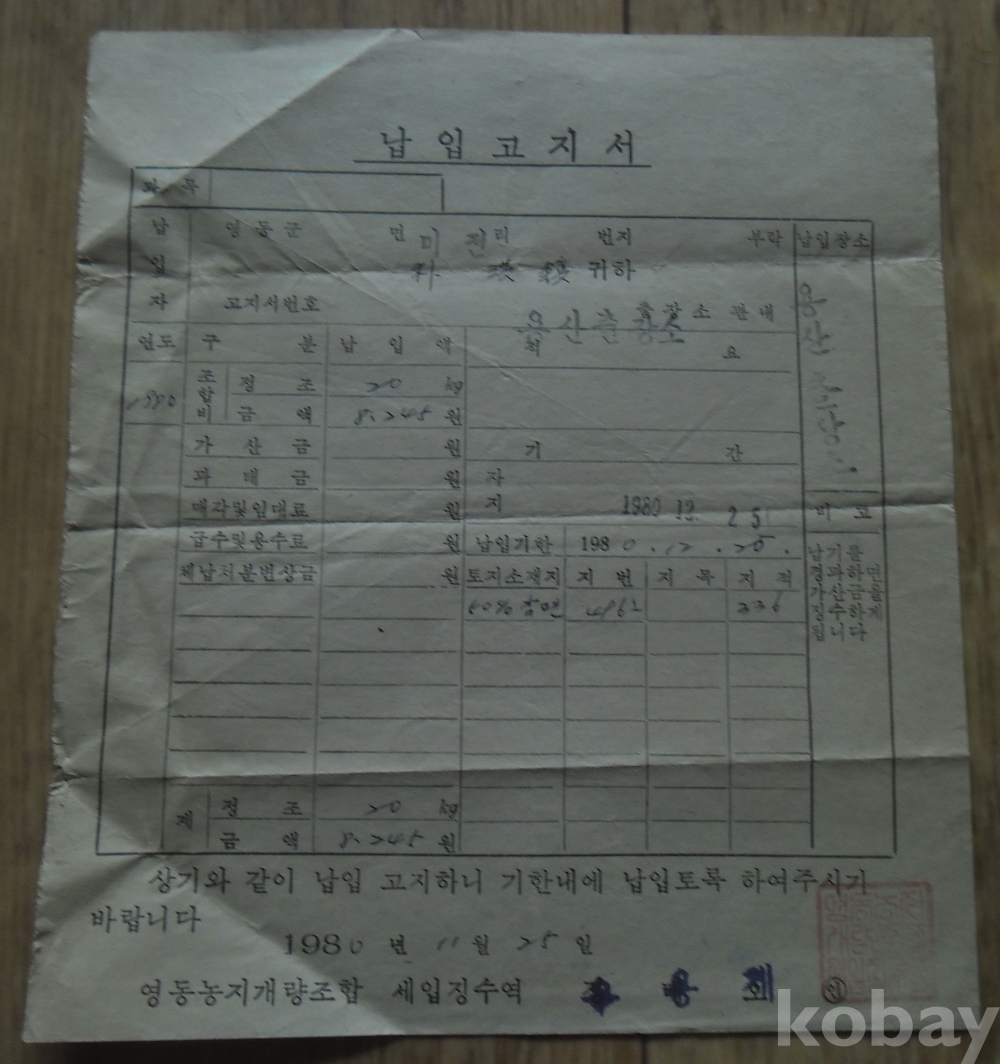 납입고지서
과 목
납입자 영동군 면 미전리 번지 부락 납입장소
귀하
고지서번호 용산출장소 출장소 관내
용산출장소
연도 구 분 납 입 액 적 요
1980 조합비 정 조 20 kg
금 액 8,245 원
가 산 금 원 기 간
과 태 금 원 자
매각및임대료 원 지 1980 12 25 비 고
급수및용수료 원 납입기한 1980.12.25.
체납처분변상금 원 토지소재지 지 번 지 목 지 적
납기를
경과하면
가산금을
징수하게
됩니다
462 336
계 정 조 20 kg
금 액 8,245 원
상기와 같이 납입 고지하니 기한내에 납입토록 하여주시기
바랍니다
1980 년 11 월 25 일
영동농지개량조합 세입징수역
kobay